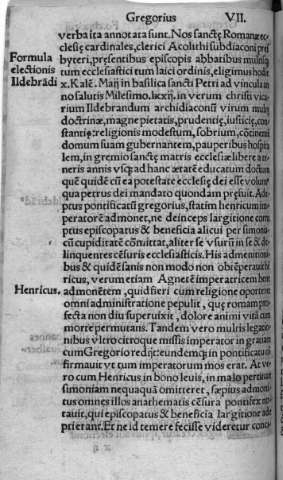 Gregorius VII.
verba ita annotata sunt. Nos sanctę Romanę ec
clesię cardinales, clerici Acolithi subdiaconi pres
Formula byteri, pręsentibus episcopis abbatibus multisq̃
electionis tum ecclesiastici tum laici ordinis, eligimus hodi
Ildebrãdi x. Kalẽ. Maij in basilica sancti Petri ad vincula an
no salutis Milesimo. lxxiij. in verum christi vica
rium Ildebrandum archidiaconũ virum multę
doctrinæ, magne pietatis, prudentię, iusticię, con
stantię: religionis modestum, sobrium, cõtinenti
domum suam gubernantem, pauperibus hospita
lem, in gremio sanctę matris ecclesiæ libere a te
neris annis vsq; ad hanc ætatẽ educatum doctum
quẽ quidẽ cũ ea potestate ecclesię dei esse volum9
qua petrus dei mandato quondam pręfuit. Ad
ptus pontificatũ gregorius, statim henricum im
peratorẽ admonet, ne deinceps largitione
ptus episcopatus & beneficia alicui per simonia
cũ cupiditatẽ cõmittat, aliter se vsurũ in se & de
linquentes cẽsuris ecclesiasticis. His admenitioni
bus & quidẽ sanis non modo non obtẽperauit
ricus, verum etiam Agnetẽ imperatricem
Henricus. admonẽtem, quid fieri cum religione oporteret
omni administratione pepulit, quę romam pro
fecta non diu superuixit, dolore animi vitã cum
morte permutans. Tandem vero multis legatio
nibus vltro citroque missis imperator in gratiam
cum Gregorio redijt: eundemq; in pontificatu
firmauit vt tum imperatorum mos erat. At ve
ro cum Henricus in bono leuis, in malo pertinax
simoniam nequaquã omitteret, sæpius admoni
tus omnes illos anathematis cẽsura pontifex no
tauit, qui episcopatus & beneficia largitione ade
pti erant. Et ne id temere fecisse videretur